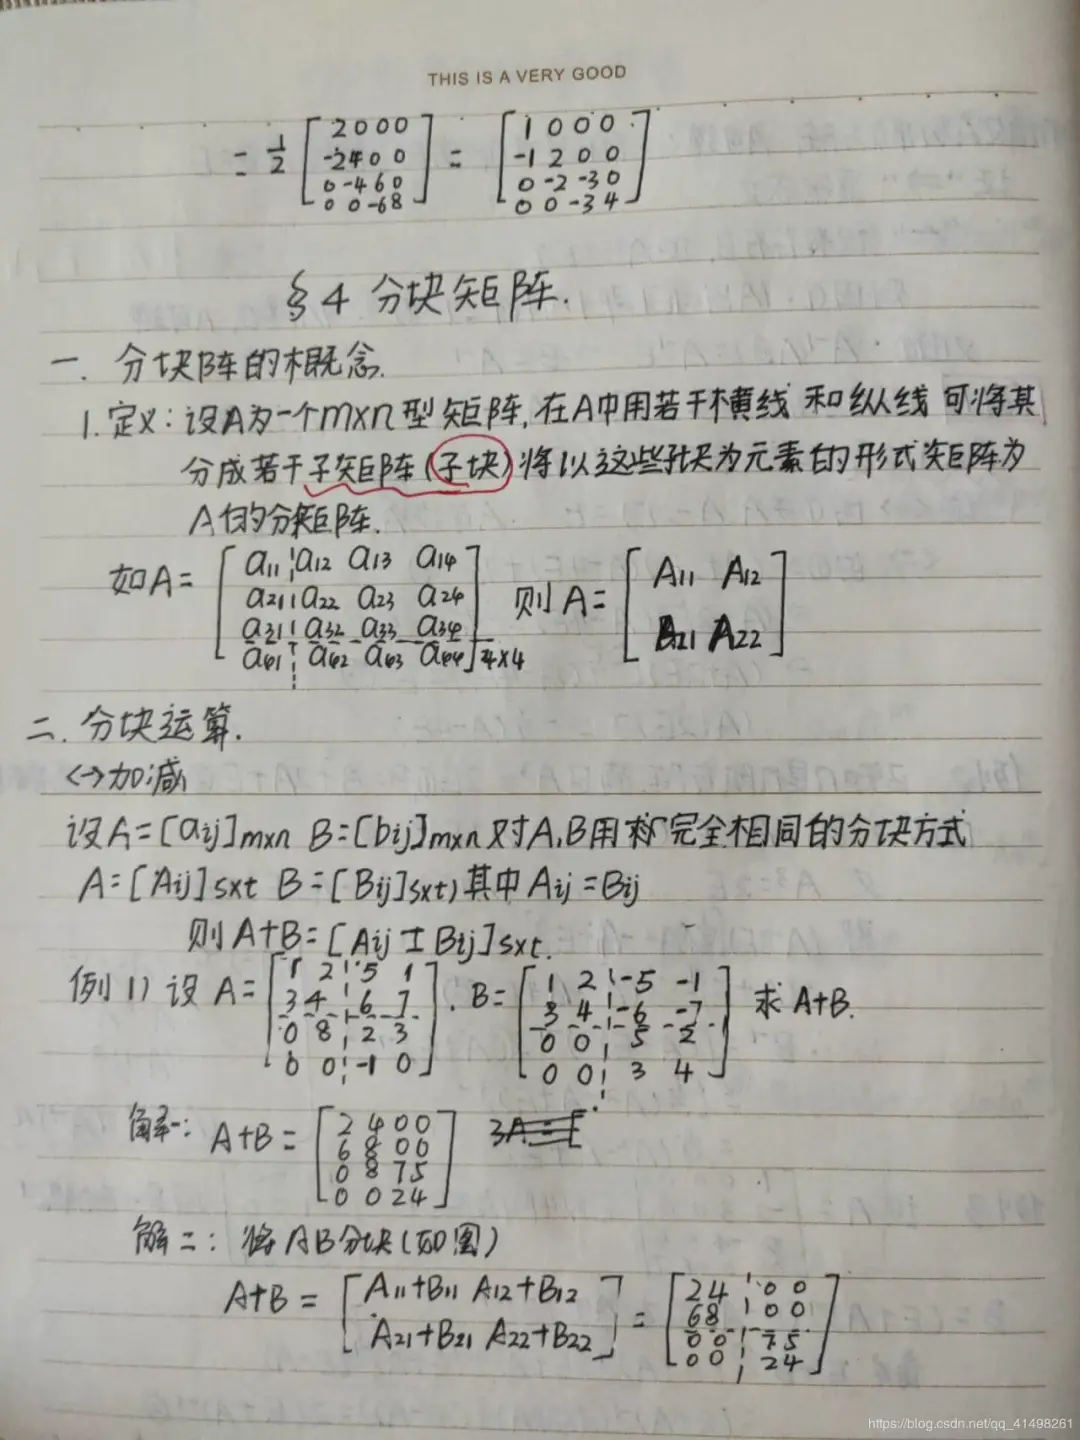 THIS IS A VERY GOOD
= 1/2 [2 0 0 0; -2 4 0 0; 0 -4 6 0; 0 0 -6 8] = [1 0 0 0; -1 2 0 0; 0 -2 -3 0; 0 0 -3 4]
§4 分块矩阵.
一. 分块阵的概念.
1. 定义: 设A为一个m×n型矩阵, 在A中用若干横线和纵线可将其
分成若干子矩阵(子块)将以这些块为元素的形式矩阵为
A的分矩阵.
如A= [a11 a12 a13 a14; a21 a22 a23 a24; a31 a32 a33 a34; a41 a42 a43 a44]4×4 则A= [A11 A12; A21 A22]
二. 分块运算.
<→加减
设A=[aij]m×n B=[bij]m×n 对A,B用称完全相同的分块方式
A=[Aij]s×t B=[Bij]s×t) 其中Aij=Bij
则A+B=[Aij±Bij]s×t.
例1) 设A= [1 2 5 1; 3 4 6 7; 0 8 2 3; 0 0 -1 0] . B= [1 2 -5 -1; 3 4 -6 -7; 0 0 5 2; 0 0 3 4] 求A+B.
解一: A+B= [2 4 0 0; 6 8 0 0; 0 8 7 5; 0 0 2 4] 3A=[
解二: 将AB分块(如图)
A+B= [A11+B11 A12+B12; A21+B21 A22+B22] = [2 4 0 0; 6 8 0 0; 0 0 7 5; 0 0 2 4]
https://blog.csdn.net/qq_41498261